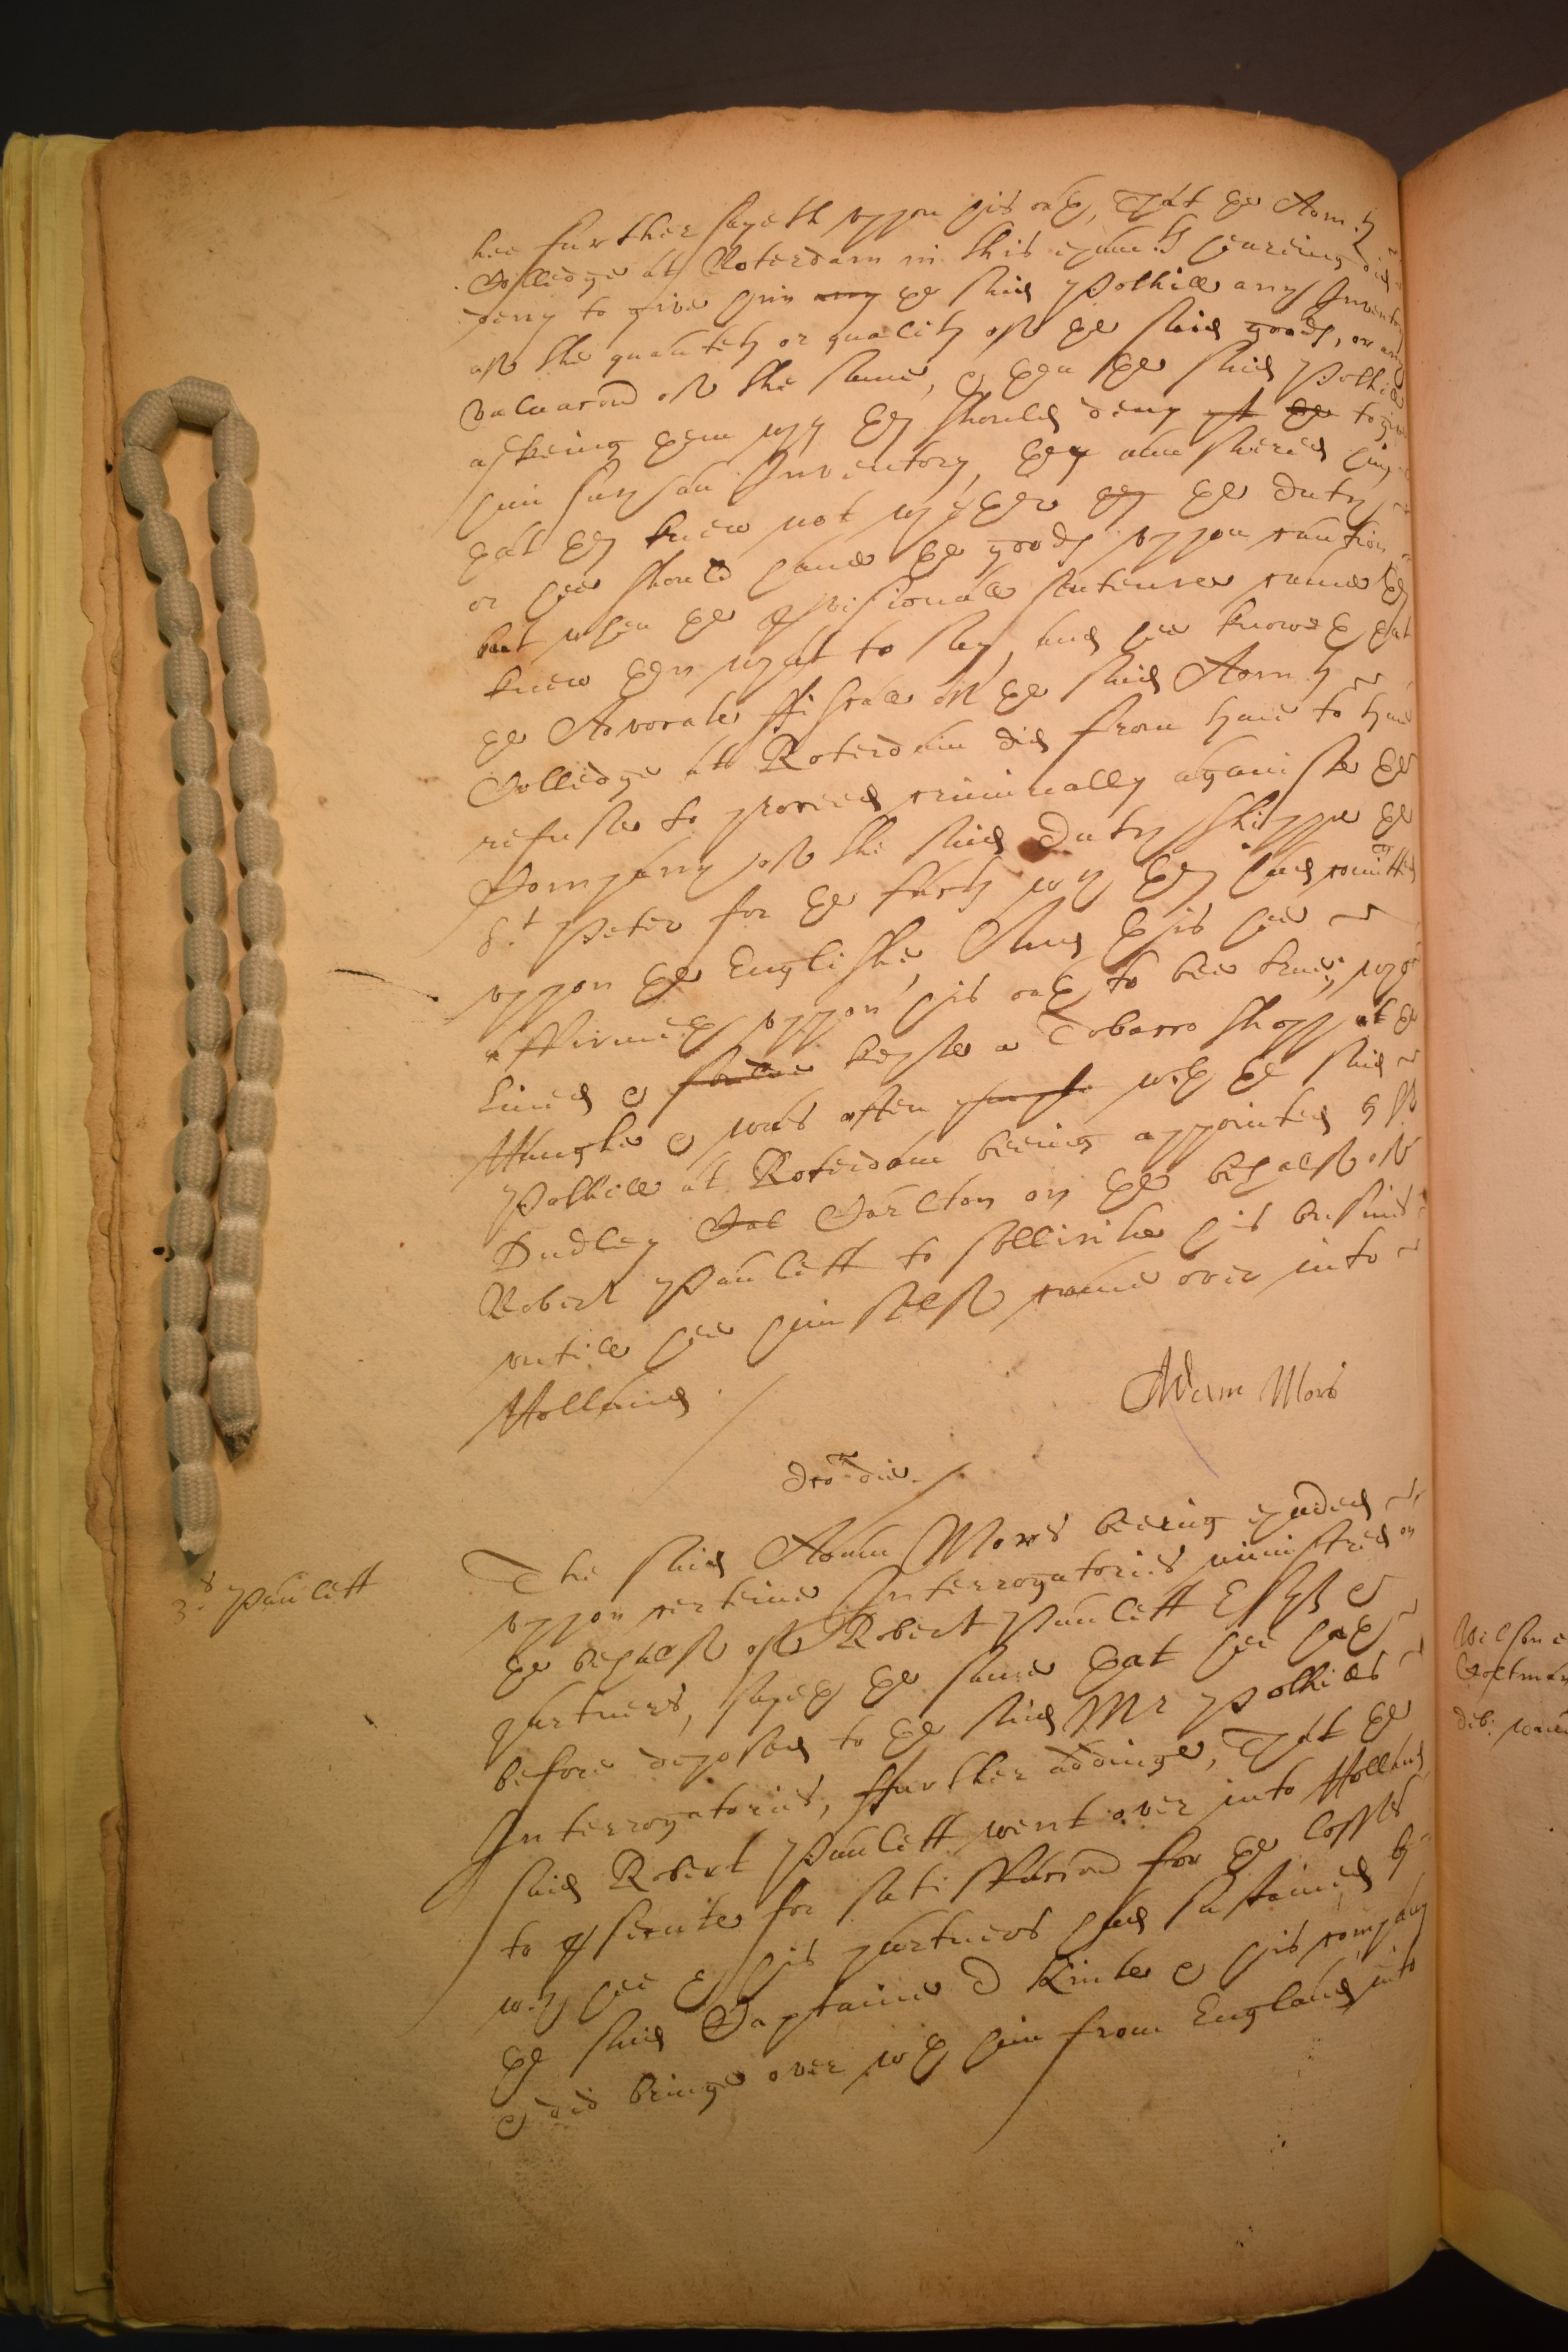 hee further sayeth uppon his oath, That the Adm.ty
Colledge att Roterdam in this exam.ts heareing did
deny to give him any the said Polhill any Inventory
off the quantity or quality off the said goods, or any
valuacion off the same, & then the said Polhill
askeing them why they should deny yt the to give
him such an Inventory, they answered him
that they knew not whether they the duty
or hee should have the goods uppon caution
but when the provisionall sentence came they
knew then what to say, and hee knoweth that
the Advocate ffiscall off the said Adm.ty
Colledge att Roterdam did from time to time
refuse to proceed criminally againste the
Company off the said Duty shippe the
S.t Peter for the facts wch they had comitted
uppon the Englishe, And this hee
affirmeth uppon his oath to bee true, who
lived & kepte a Tobacco shopp att the
Haughe & was often with the said
Polhill at Roterdam beeing appointed by S.r
Dudley Carlton on the behalff off
Robert Paulett to sollicite his busines
untill hee him selff came over into
Holland
Adam Mors
dco die
3.s Paulett
The said Adam Mors beeing exaied
uppon certeine Interrogatories ministred on
the behalff off Robert Paulett Esq &
partners, sayeth the same that hee hath
before deposed to the said Mr Polhills
Interrogatories, ffurther addinge, That the
said Robert Paulett went over into Holland
to prsecute for satisffaccion for the losses
wch hee & his partners had sustained by
the said Captaine D Kinte & his company
& did bringe over with him from England into
Wilson